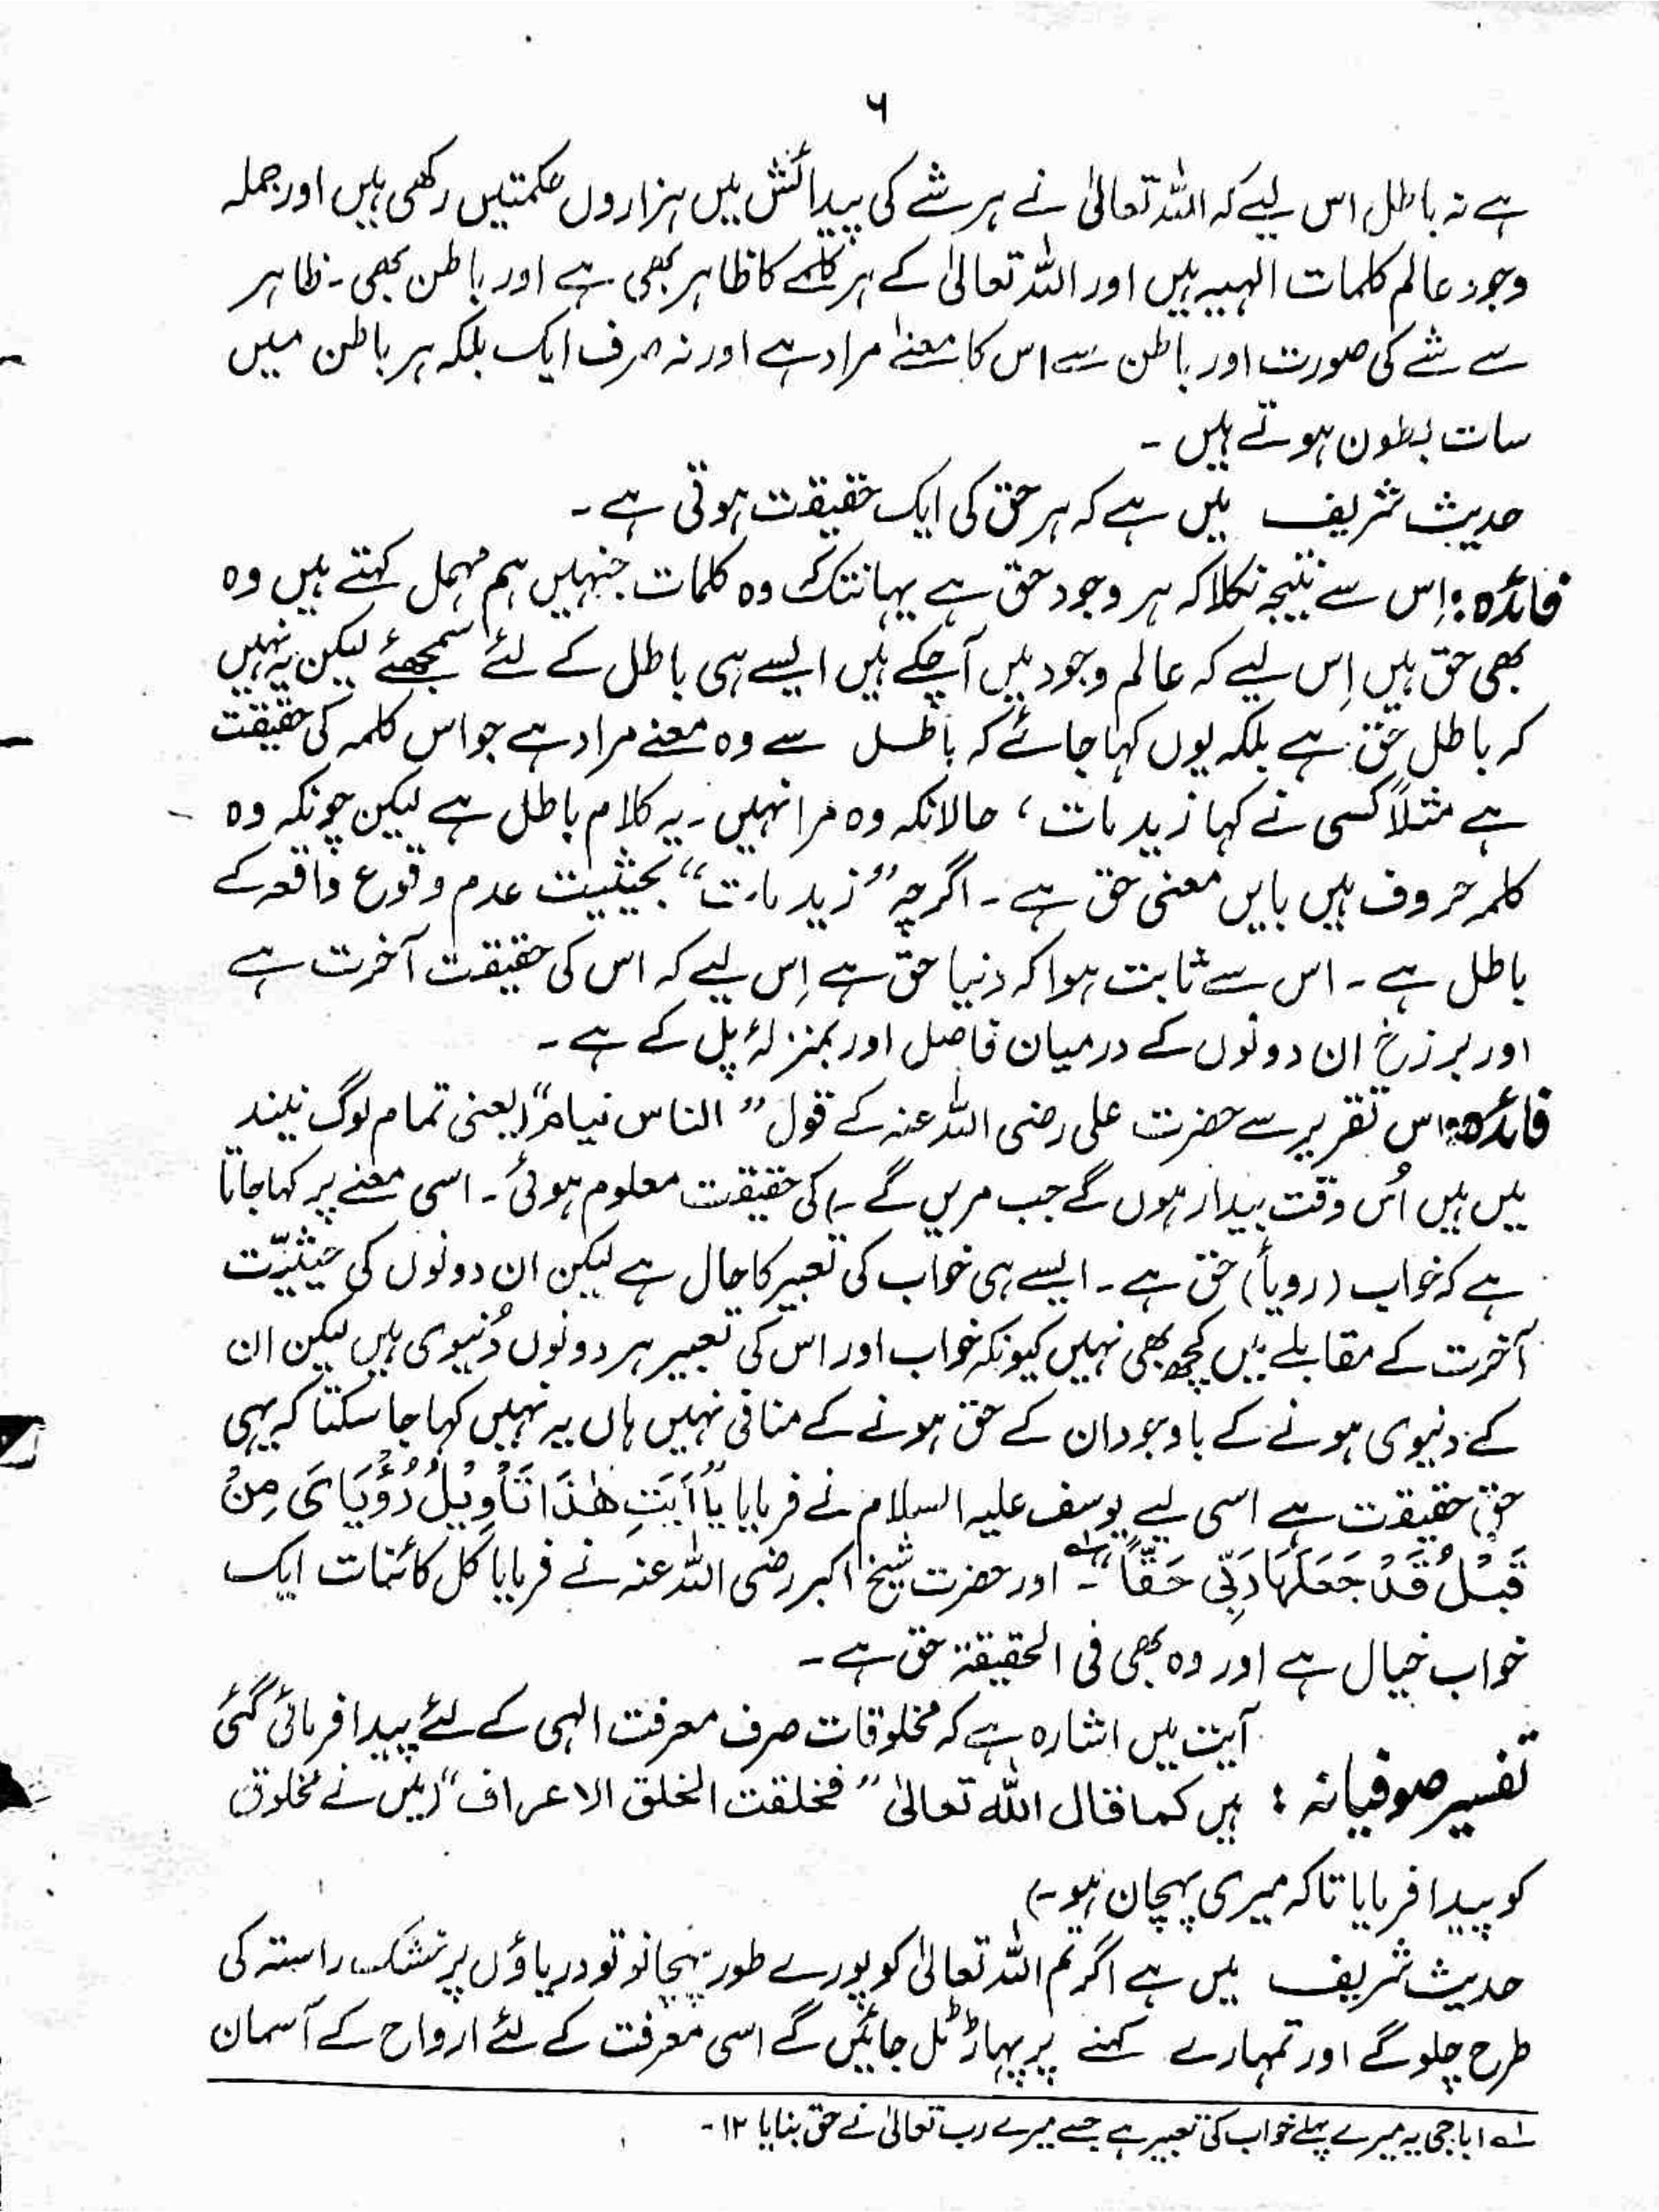 ۶
ہے نہ باطل اس لیے کہ اللہ تعالیٰ نے ہر شے کی پیدائش میں ہزاروں حکمتیں رکھی ہیں اور جملہ
وجود عالم کلمات الہیہ ہیں اور اللہ تعالیٰ کے ہر کلمے کا ظاہر بھی ہے اور باطن بھی ۔ ظاہر
سے شے کی صورت اور باطن سے اس کا معنےٰ مراد ہے اور نہ صرف ایک بلکہ ہر باطن میں
سات بطون ہوتے ہیں ۔
حدیث شریف میں ہے کہ ہر حق کی ایک حقیقت ہوتی ہے ۔
فائدہ : اِس سے نتیجہ نکلا کہ ہر وجود حق ہے یہانتک کہ وہ کلمات جنہیں ہم مہمل کہتے ہیں وہ
بھی حق ہیں اِس لیے کہ عالم وجود میں آچکے ہیں ایسے ہی باطل کے لئے سمجھئے لیکن یہ نہیں
کہ باطل حق ہے بلکہ یوں کہا جائے کہ باطل سے وہ معنے مراد ہے جو اس کلمہ کی حقیقت
ہے مثلاً کسی نے کہا زید مات ، حالانکہ وہ مرا نہیں ۔ یہ کلام باطل ہے لیکن چونکہ وہ
کلمہ حروف ہیں بایں معنی حق ہے ۔ اگرچہ ”زید مات“ بحیثیت عدم وقوع واقعہ کے
باطل ہے ۔ اس سے ثابت ہوا کہ دنیا حق ہے اِس لیے کہ اس کی حقیقت آخرت ہے
اور برزخ ان دونوں کے درمیان فاصل اور بمنزلۂ پل کے ہے ۔
فائدہ : اس تقریر سے حضرت علی رضی اللہ عنہ کے قول ” الناس نیام “ (یعنی تمام لوگ نیند
میں ہیں اُس وقت بیدار ہوں گے جب مریں گے ۔) کی حقیقت معلوم ہوئی ۔ اسی معنے پر کہا جاتا
ہے کہ خواب (رویأ) حق ہے ۔ ایسے ہی خواب کی تعبیر کا حال ہے لیکن ان دونوں کی حیثیّت
آخرت کے مقابلے میں کچھ بھی نہیں کیونکہ خواب اور اس کی تعبیر ہر دونوں دُنیوی ہیں لیکن ان
کے دنیوی ہونے کے باوجود ان کے حق ہونے کے منافی نہیں ہاں یہ نہیں کہا جا سکتا کہ یہی
حق حقیقت ہے اسی لیے یوسف علیہ السلام نے فرمایا ”یٰۤاَبَتِ ھٰذَا تَاْوِیْلُ رُؤْیَایَ مِنْ
قَبْلُ قَدْ جَعَلَہَا رَبِّیْ حَقًّا“ ۔ ؎۱ اور حضرت شیخ اکبر رضی اللہ عنہ نے فرمایا کل کائنات ایک
خواب خیال ہے اور وہ بھی فی الحقیقۃ حق ہے ۔
آیت میں اشارہ ہے کہ مخلوقات صرف معرفت الہی کے لئے پیدا فرمائی گئی
تفسیر صوفیانہ : ہیں کما قال اللہ تعالیٰ ” فخلقت الخلق الاعراف “ (میں نے مخلوق
کو پیدا فرمایا تاکہ میری پہچان ہو ۔)
حدیث شریف میں ہے اگر تم اللہ تعالیٰ کو پورے طور پہچانو تو دریاؤں پر خشک راستہ کی
طرح چلو گے اور تمہارے کہنے پر پہاڑ ٹل جائیں گے اسی معرفت کے لئے ارواح کے آسمان
؎۱ اباجی یہ میرے پہلے خواب کی تعبیر ہے جسے میرے رب تعالیٰ نے حق بنایا ۱۲ ۔